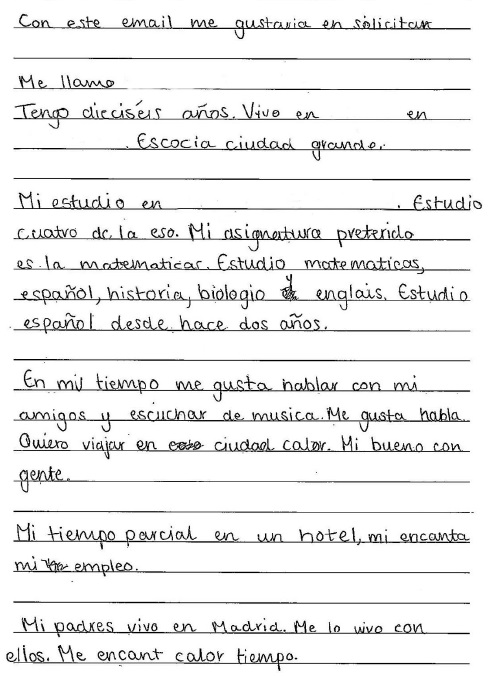 Con este email me gustaria en solicitar
Me llamo
Tengo dieciséis años. Vivo en en
. Escocia ciudad grande.
Mi estudio en . Estudio
cuatro de la eso. Mi asignatura preterido
es la matematicas. Estudio matematicas,
español, historia, biologio y englais. Estudio
español desde hace dos años.
En mi tiempo me gusta hablar con mi
amigos y escuchar de musica. Me gusta habla.
Quiero viajar en ciudad calor. Mi bueno con
gente.
Mi tiempo parcial en un hotel, mi encanta
mi empleo.
Mi padres vivo en Madrid. Me lo vivo con
ellos. Me encant calor tiempo.